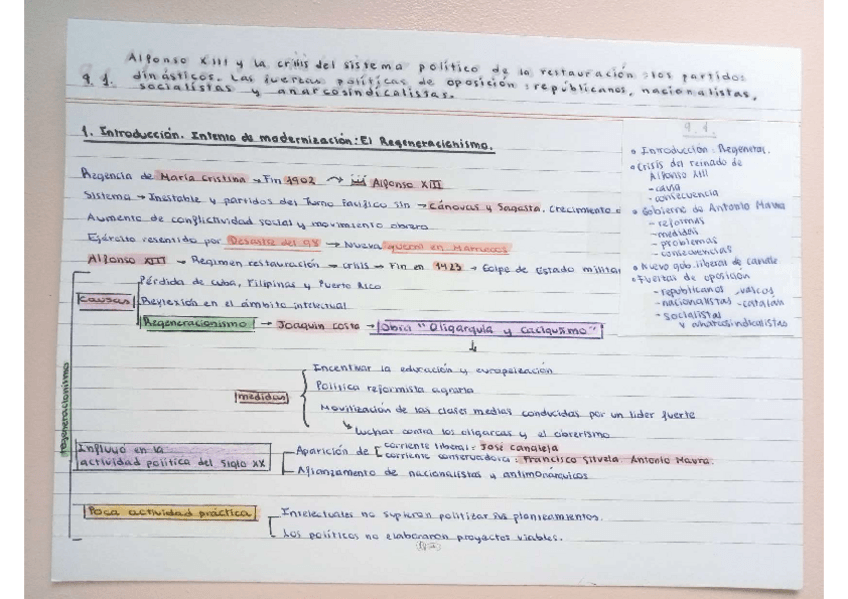 Alfonso XIII y la crisis del sistema político de la restauración: los partidos
9.1. dinásticos. Las fuerzas políticas de oposición: republicanos, nacionalistas,
socialistas y anarcosindicalistas.
1. Introducción. Intento de modernización: El Regeneracionismo.
Regencia de María Cristina → Fin 1902 → Alfonso XIII
Sistema → Inestable y partidos del Turno Pacífico sin → Cánovas y Sagasta. Crecimiento
Aumento de conflictividad social y movimiento obrero
Ejército resentido por Desastre del 98 → Nueva guerra en Marruecos
Alfonso XIII → Regimen restauración → crisis → Fin en 1923 → Golpe de Estado militar
regeneracionismo
causas
Pérdida de Cuba, Filipinas y Puerto Rico
Reflexión en el ámbito intelectual
Regeneracionismo → Joaquín Costa → Obra "Oligarquía y Caciquismo"
medidas
Incentivar la educación y europeización
Política reformista agraria
Movilización de las clases medias conducidas por un lider fuerte
↳ Luchar contra los oligarcas y el obrerismo
Influyó en la
actividad política del Siglo XX
Aparición de
corriente liberal: José Canaleja
corriente conservadora: Francisco Silvela Antonio Maura.
Afianzamiento de nacionalistas y antimonárquicos
Poca actividad práctica
Intelectuales no supieron politizar sus planteamientos.
Los políticos no elaboraron proyectos viables.
9.1.
• Introducción: Regenerac.
• Crisis del reinado de
Alfonso XIII
- causa
- consecuencia
• Gobierno de Antonio Maura
- reformas
- medidas
- problemas
- consecuencias
• Nuevo gob. liberal de canale
• Fuerzas de oposición
- republicanos - vascos
- nacionalistas - catalán
- socialistas
y anarcosindicalistas